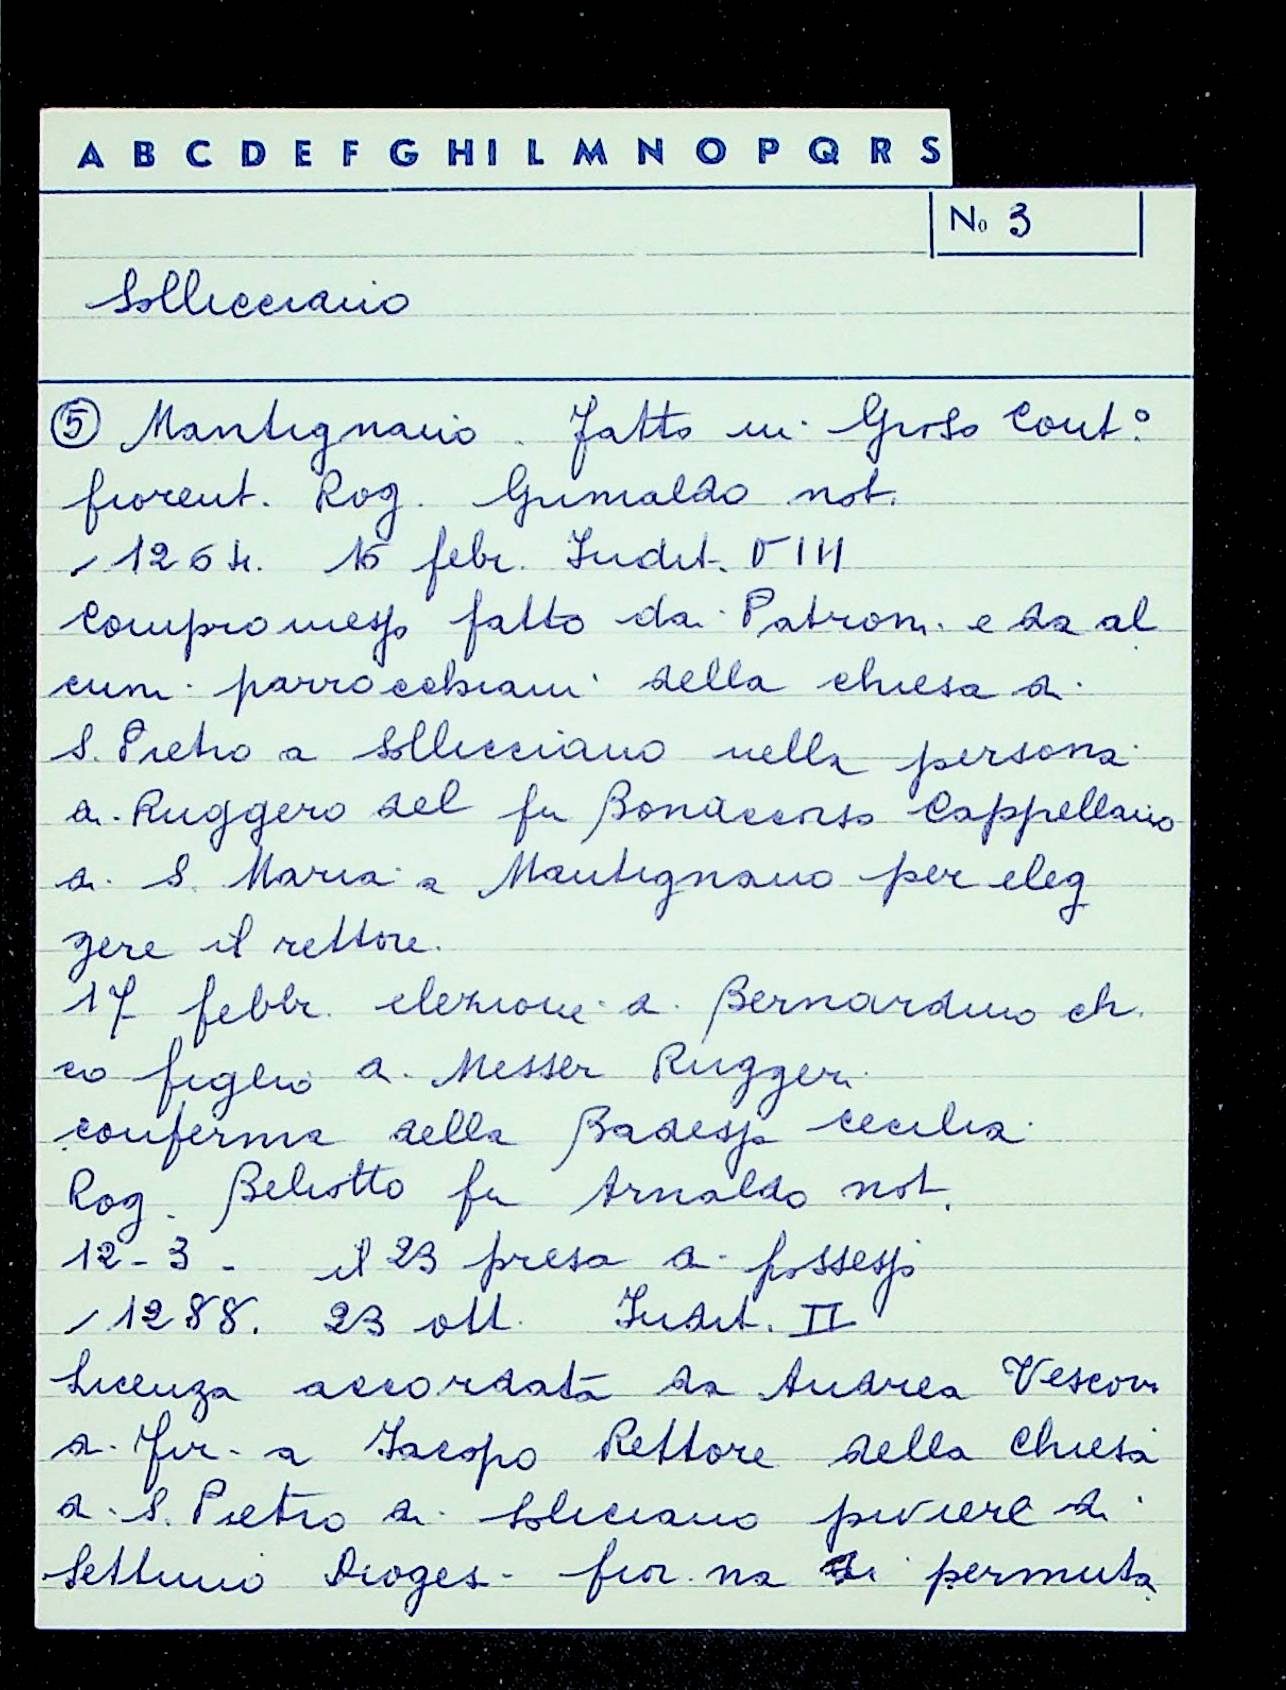 A B C D E F G H I L M N O P Q R S
No 3
Sollicciano
⑤ Mantignano. Fatto in Greso Cont.º
fiorent. Rog. Grimaldo not.
, 1264. 16 febr. Indit. VIII
Compromesso fatto dai Patroni e da al
cuni parrocchiani della chiesa di
S. Pietro a Sollicciano nella persona
di Ruggero del fu Bonaccorso Cappellano
di S. Maria a Mantignano per eleg
gere il rettore.
17 febbr. elezione di Bernardino ch.
co figlio di Messer Ruggeri
conferma della Badessa Cecilia
Rog. Beliotto fu Arnaldo not.
12-3- il 23 presa di possesso
, 1288. 23 ott. Indit. II
Licenza accordata da Andrea Vescovo
di Fir. a Jacopo Rettore della Chiesa
di S. Pietro di Soliciano piviere di
Settimo Dioges. fior. na di permuta